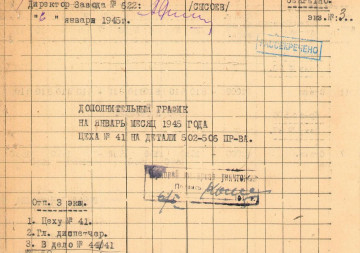 Директор Завода № 622: /СЫСОЕВ/
"6" января 1945г.
экз.№: 3
РАССЕКРЕЧЕНО
ДОПОЛНИТЕЛЬНЫЙ ГРАФИК
НА ЯНВАРЬ МЕСЯЦ 1945 ГОДА
ЦЕХА № 41 НА ДЕТАЛИ 502-506 ПР-ВА.
Отп. 3 экз.
1. Цеху № 41.
2. Гл. диспатчер.
3. В дело № 44/41